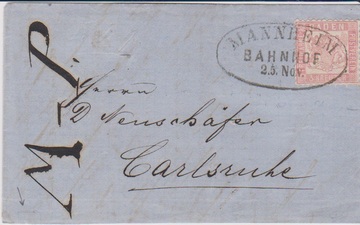 MANNHEIM
BAHNHOF
25. Nov.
BADEN
M-P.
Herrn
D Neuschäfer
Carlsruhe